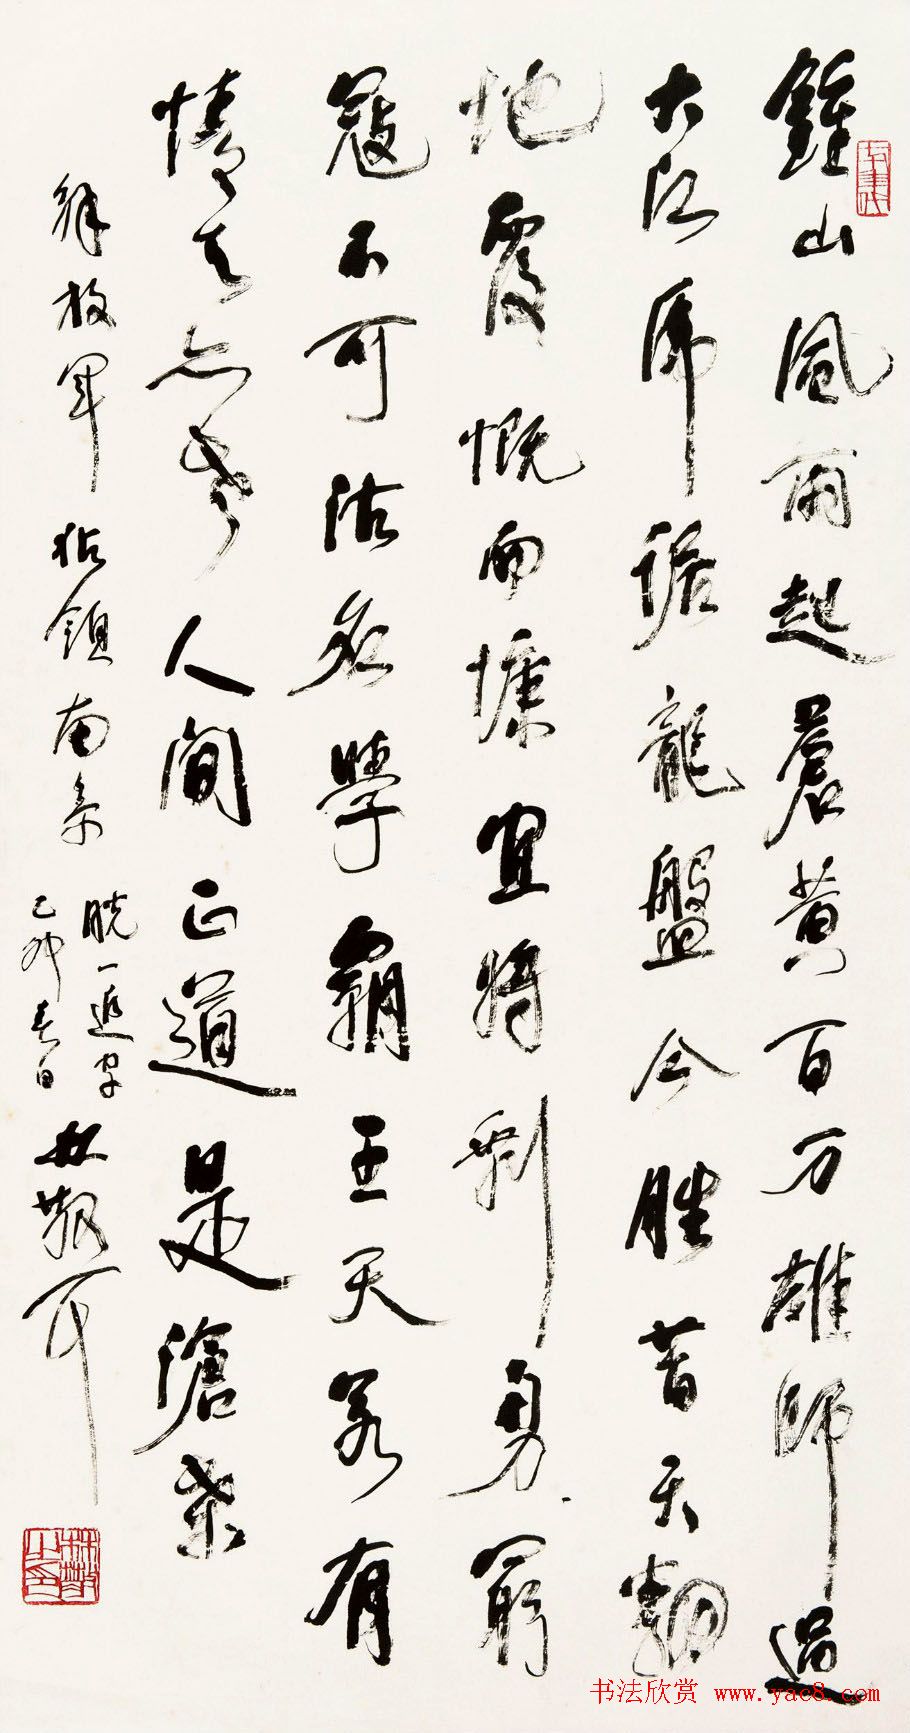 鍾山風雨起蒼黄百万雄師過
大江虎踞龍盤今勝昔天翻
地覆慨而慷宜将剩勇窮
寇不可沽名學霸王天若有
情天亦老人間正道是滄桑
解放軍佔領南京
脱一追字
乙卯春日
林散耳
林散之印
书法欣赏 www.yac8.com